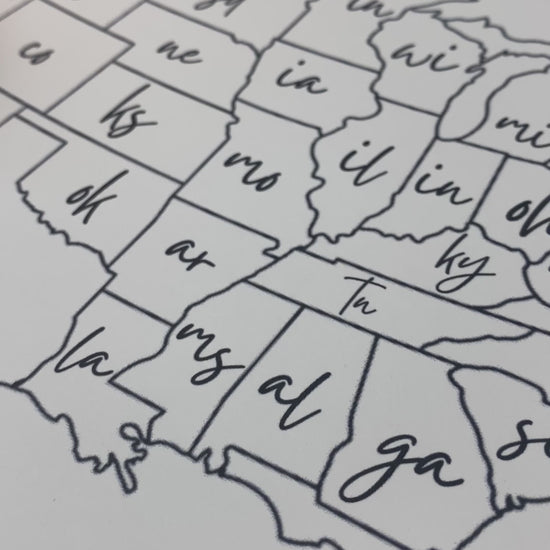 co
ne
ia
wi
mi
ks
mo
il
in
ok
ar
ky
Tn
la
ms
al
ga